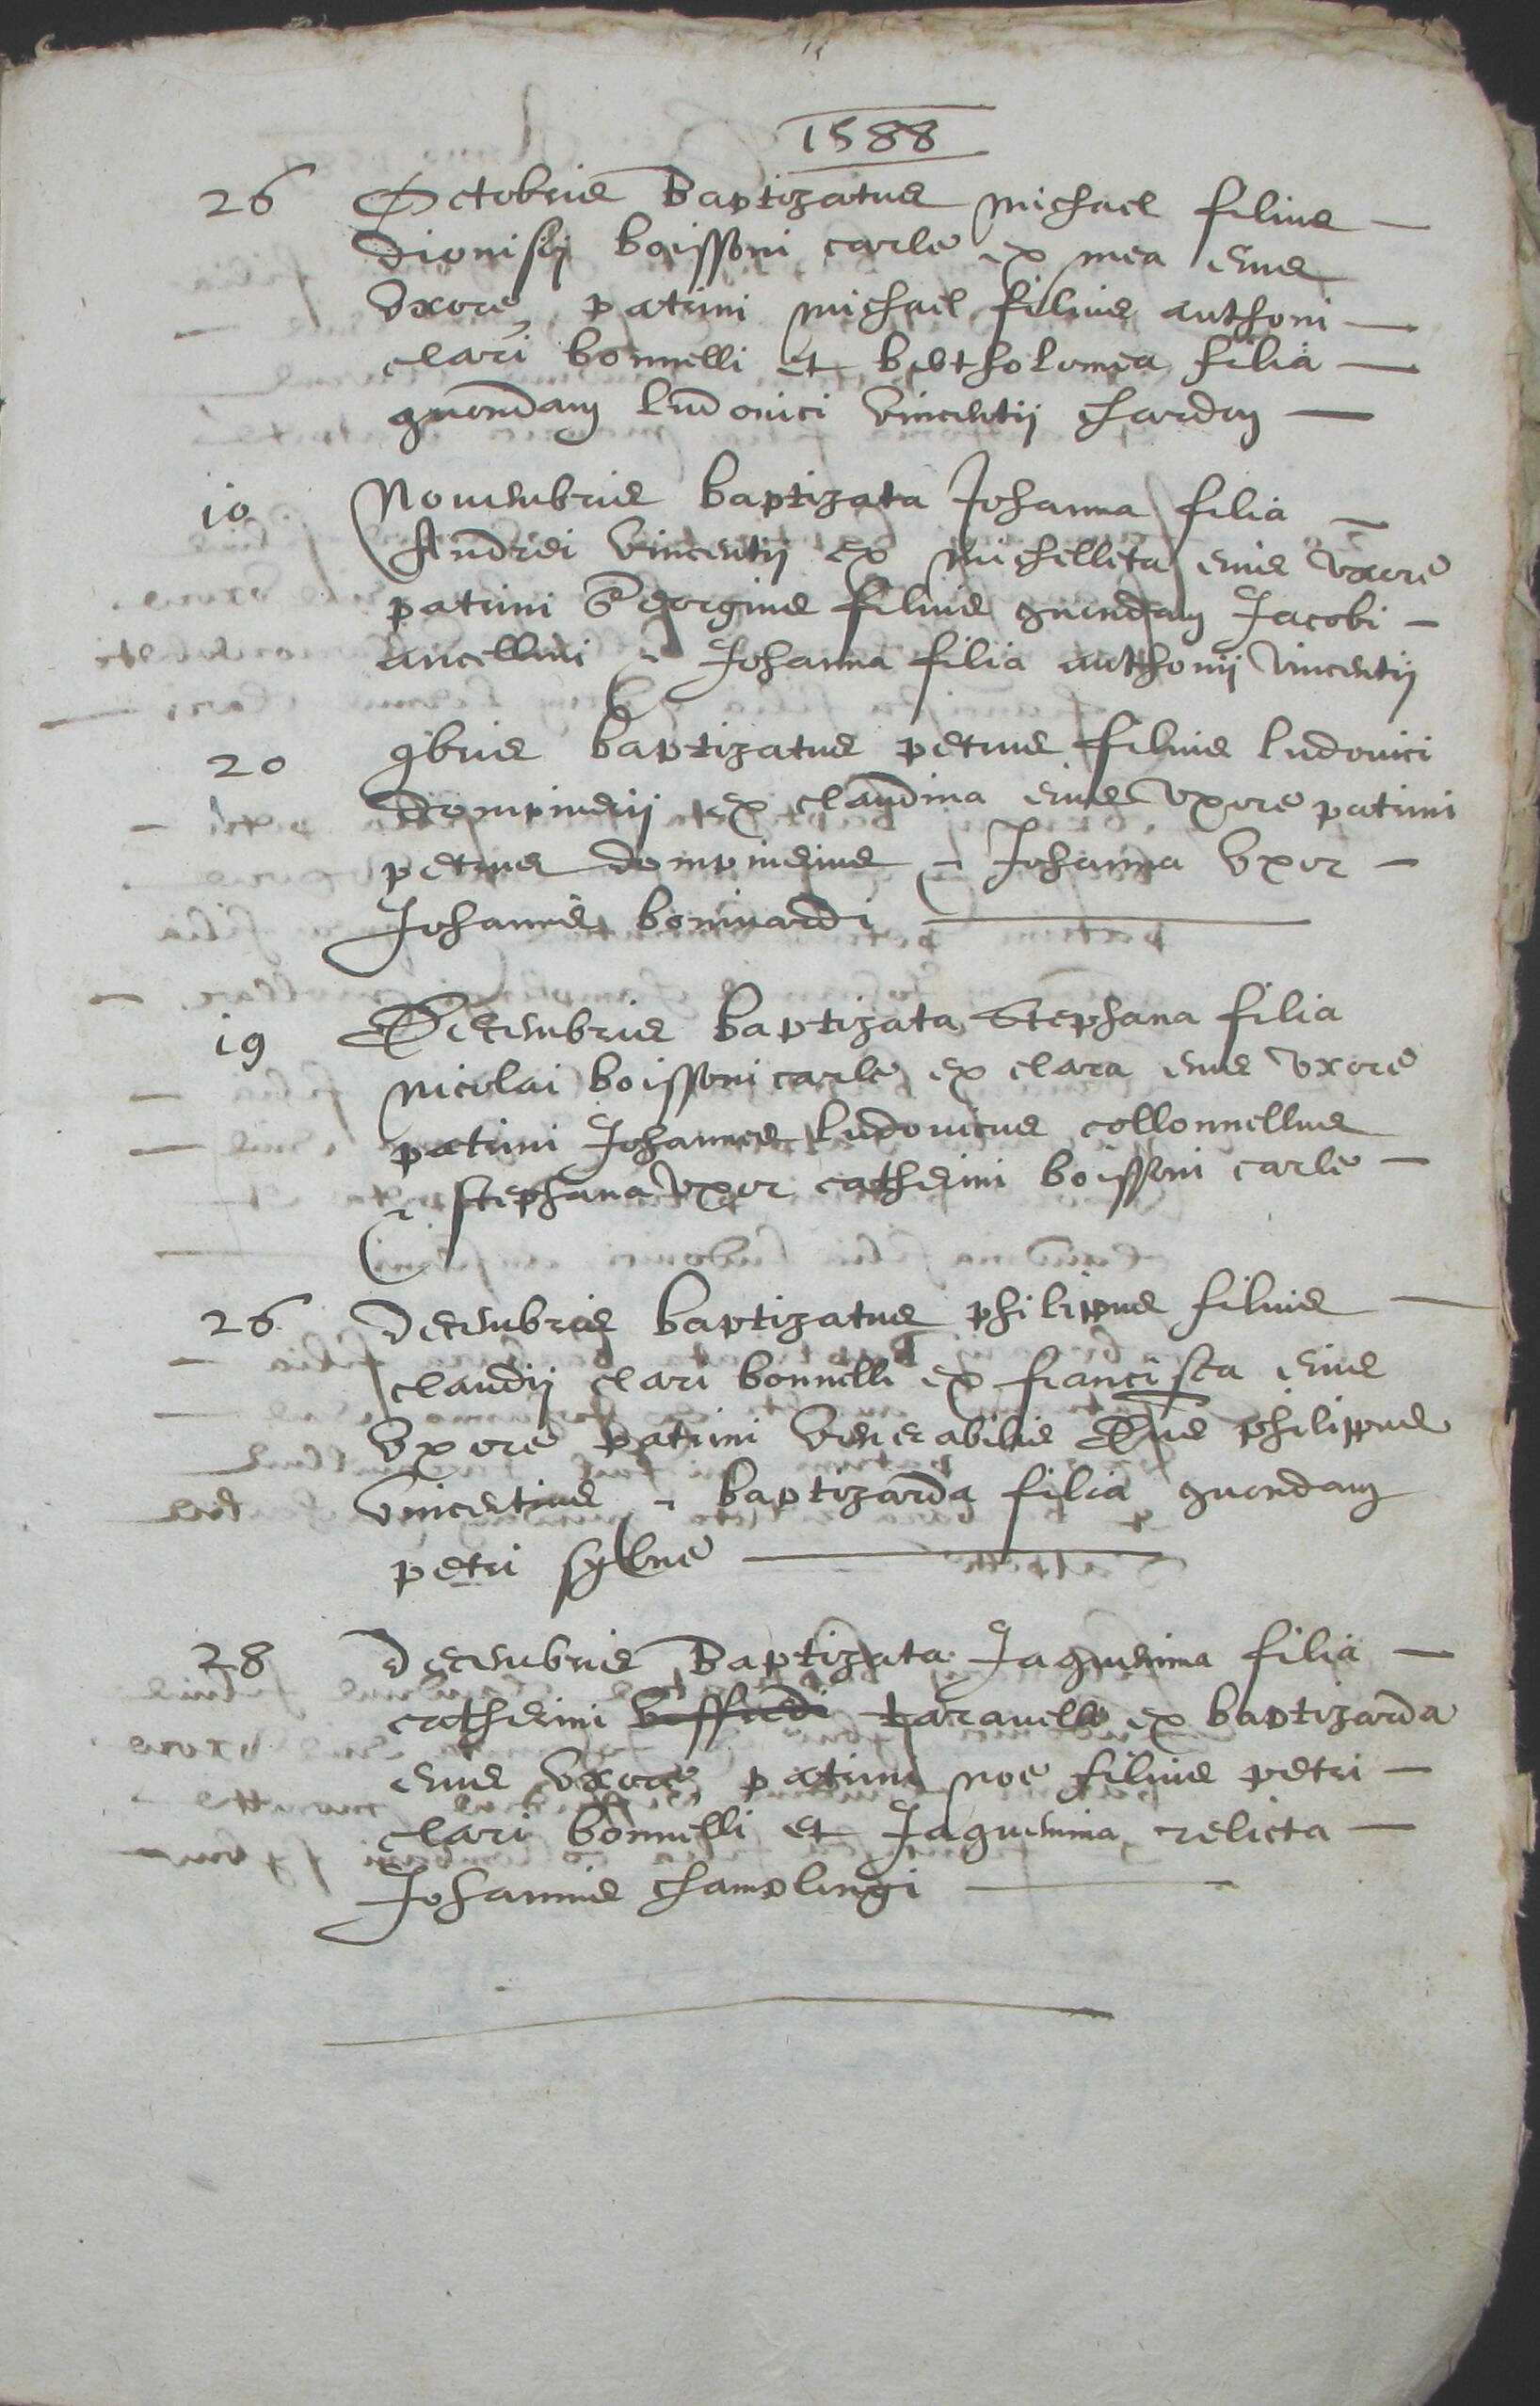 1588
26 Octobris Baptizatus michael filius
dionisii boissoni carle ex mea eius
uxore, patrini michael filius anthoni
clari bonnelli et bertholomea filia
quondam ludovici vincentii chardon
10 Novembris baptizata Johanna filia
Andrei vincentii ex michelleta eius uxore
patrini Georgius filius quondam Jacobi
ancellini & Johanna filia anthonii vincentii
20 9bris baptizatus petrus filius ludovici
dompnerii ex claudina eius uxore patrini
petrus dompnerius & Johanna uxor
Johannis bonivardi
19 Decembris baptizata Stephana filia
nicolai boissoni carle ex clara eius uxore
patrini Johannes ludovicus collonnellus
& stephana uxor catherini boissoni carle
26 decembris baptizatus philippus filius
claudii clari bonnelli ex francisca eius
uxore patrini venerabilis Dns philippus
vincentius & baptizarda filia quondam
petri sylve
28 decembris Baptizata Jaquemina filia
catherini taravelli ex baptizarda
eius uxore, patrini noe filius petri
clari bonnelli et Jaquemina relicta
Johannis champlingi